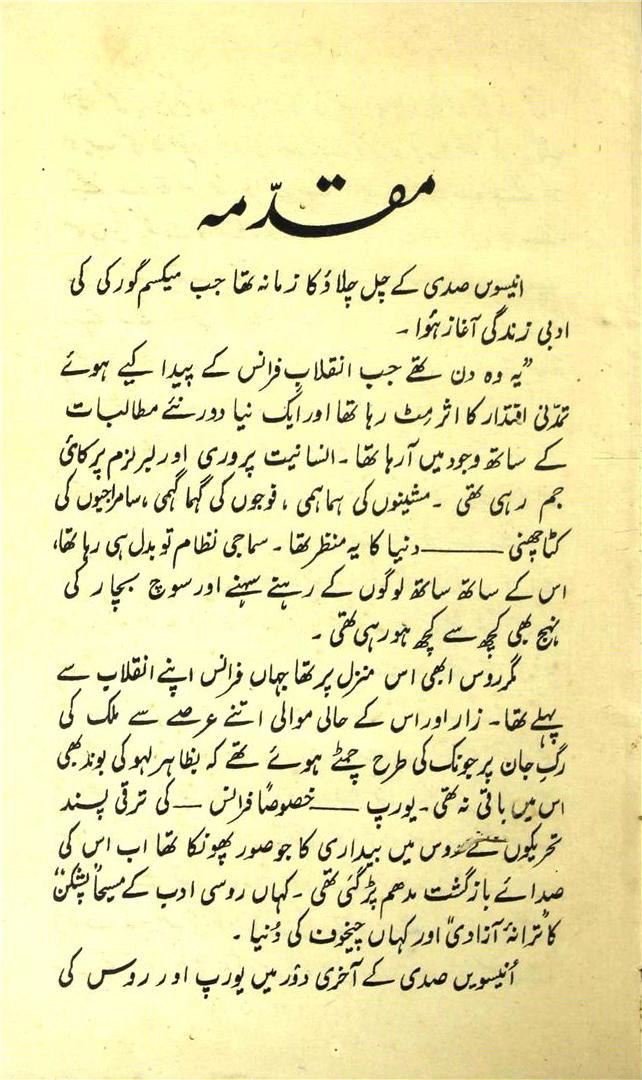 مقدّمہ
انیسویں صدی کے چل چلاؤ کا زمانہ تھا جب میکسم گورکی کی
ادبی زندگی آغاز ہوا ۔
”یہ وہ دن تھے جب انقلابِ فرانس کے پیدا کیے ہوئے
تمدّنی اقتدار کا اثر مِٹ رہا تھا اور ایک نیا دور نئے مطالبات
کے ساتھ وجود میں آرہا تھا ۔ انسانیت پروری اور لبرلزم پر کائی
جم رہی تھی ۔ مشینوں کی ہماہمی ، فوجوں کی گہما گہمی ، سامراجیوں کی
کٹا چھنی ——— دنیا کا یہ منظر تھا ۔ سماجی نظام تو بدل ہی رہا تھا،
اس کے ساتھ ساتھ لوگوں کے رہنے سہنے اور سوچ بچار کی
نہج بھی کچھ سے کچھ ہو رہی تھی ۔
مگر روس ابھی اس منزل پر تھا جہاں فرانس اپنے انقلاب سے
پہلے تھا ۔ زار اور اس کے حالی موالی اتنے عرصے سے ملک کی
رگِ جان پر جونک کی طرح چمٹے ہوئے تھے کہ بظاہر لہو کی بوند بھی
اس میں باقی نہ تھی ۔ یورپ —— خصوصاً فرانس — کی ترقی پسند
تحریکوں نے روس میں بیداری کا جو صور پھونکا تھا اب اس کی
صدائے بازگشت مدھم پڑ گئی تھی ۔ کہاں روسی ادب کے مسیحا ”پشکن“
کا ”ترانۂ آزادی“ اور کہاں چیخوف کی دُنیا ۔
اُنیسویں صدی کے آخری دَور میں یورپ اور روس کی